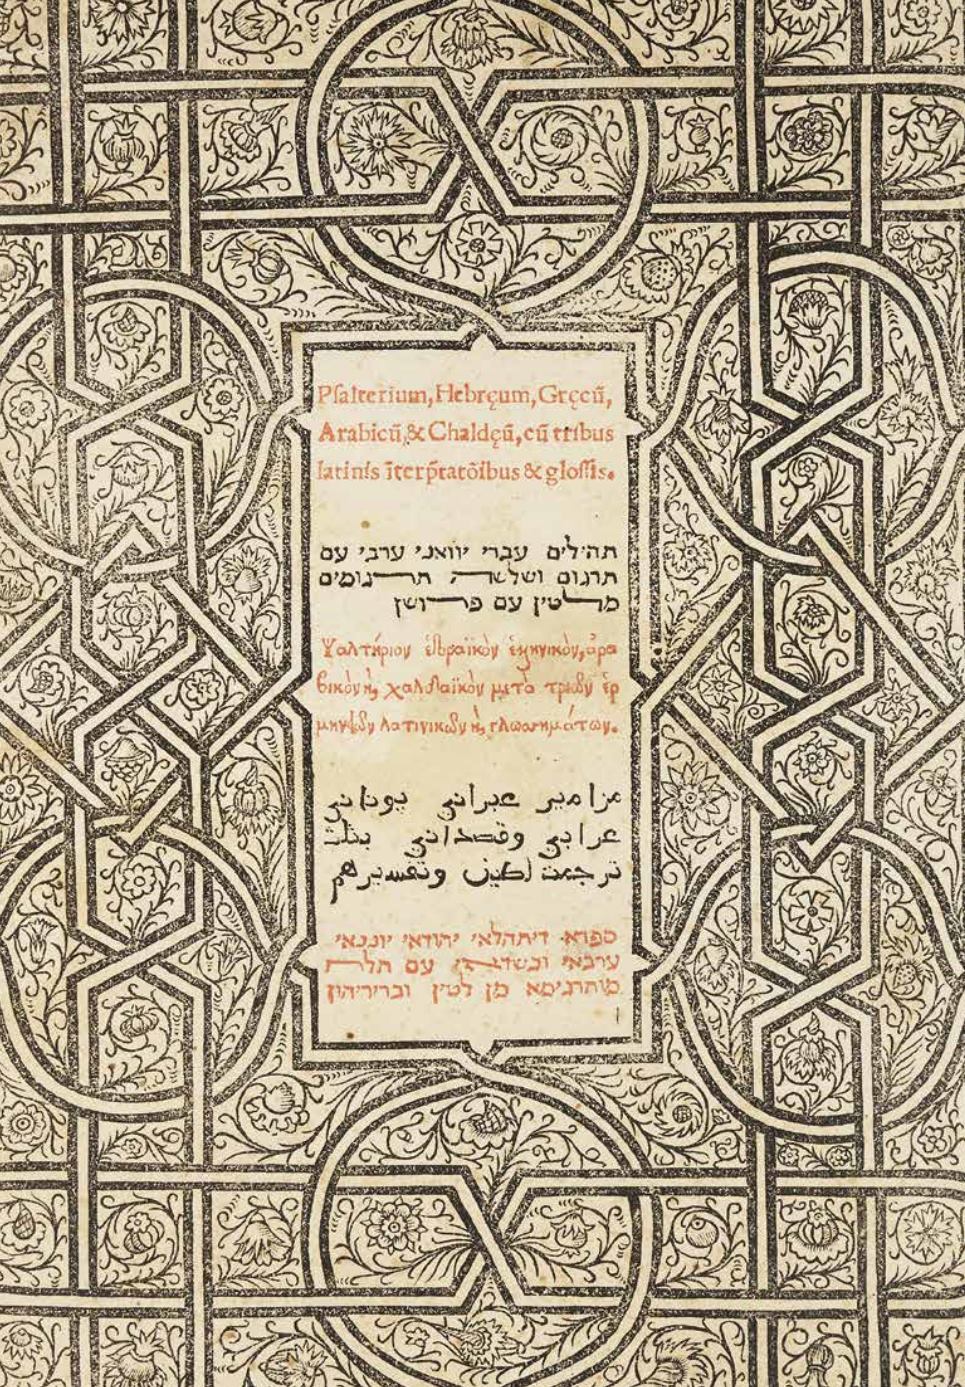 Psalterium, Hebręum, Gręcū,
Arabicū, & Chaldęū, cū tribus
latinis īterp̄tatōibus & glossis.
תהילים עברי יוואני ערבי עם
תרגום ושלשה תרגומים
מלטין עם פרושן
Ψαλτήριον ἑβραϊκὸν ἑλληνικὸν, ἀρα
βικὸν καὶ χαλδαϊκὸν μετὰ τριῶν ἑρ
μηνειῶν λατινικῶν καὶ γλωσσημάτων.
مزامير عبراني يوناني
عرابي وقصداني بثلث
ترجمت لطين وتفسيرهم
ספרא דיתהלאי יהודאי יוננאי
ערבאי וכשדאי עם תלת
מתרגימא מן לטין ובריריהון